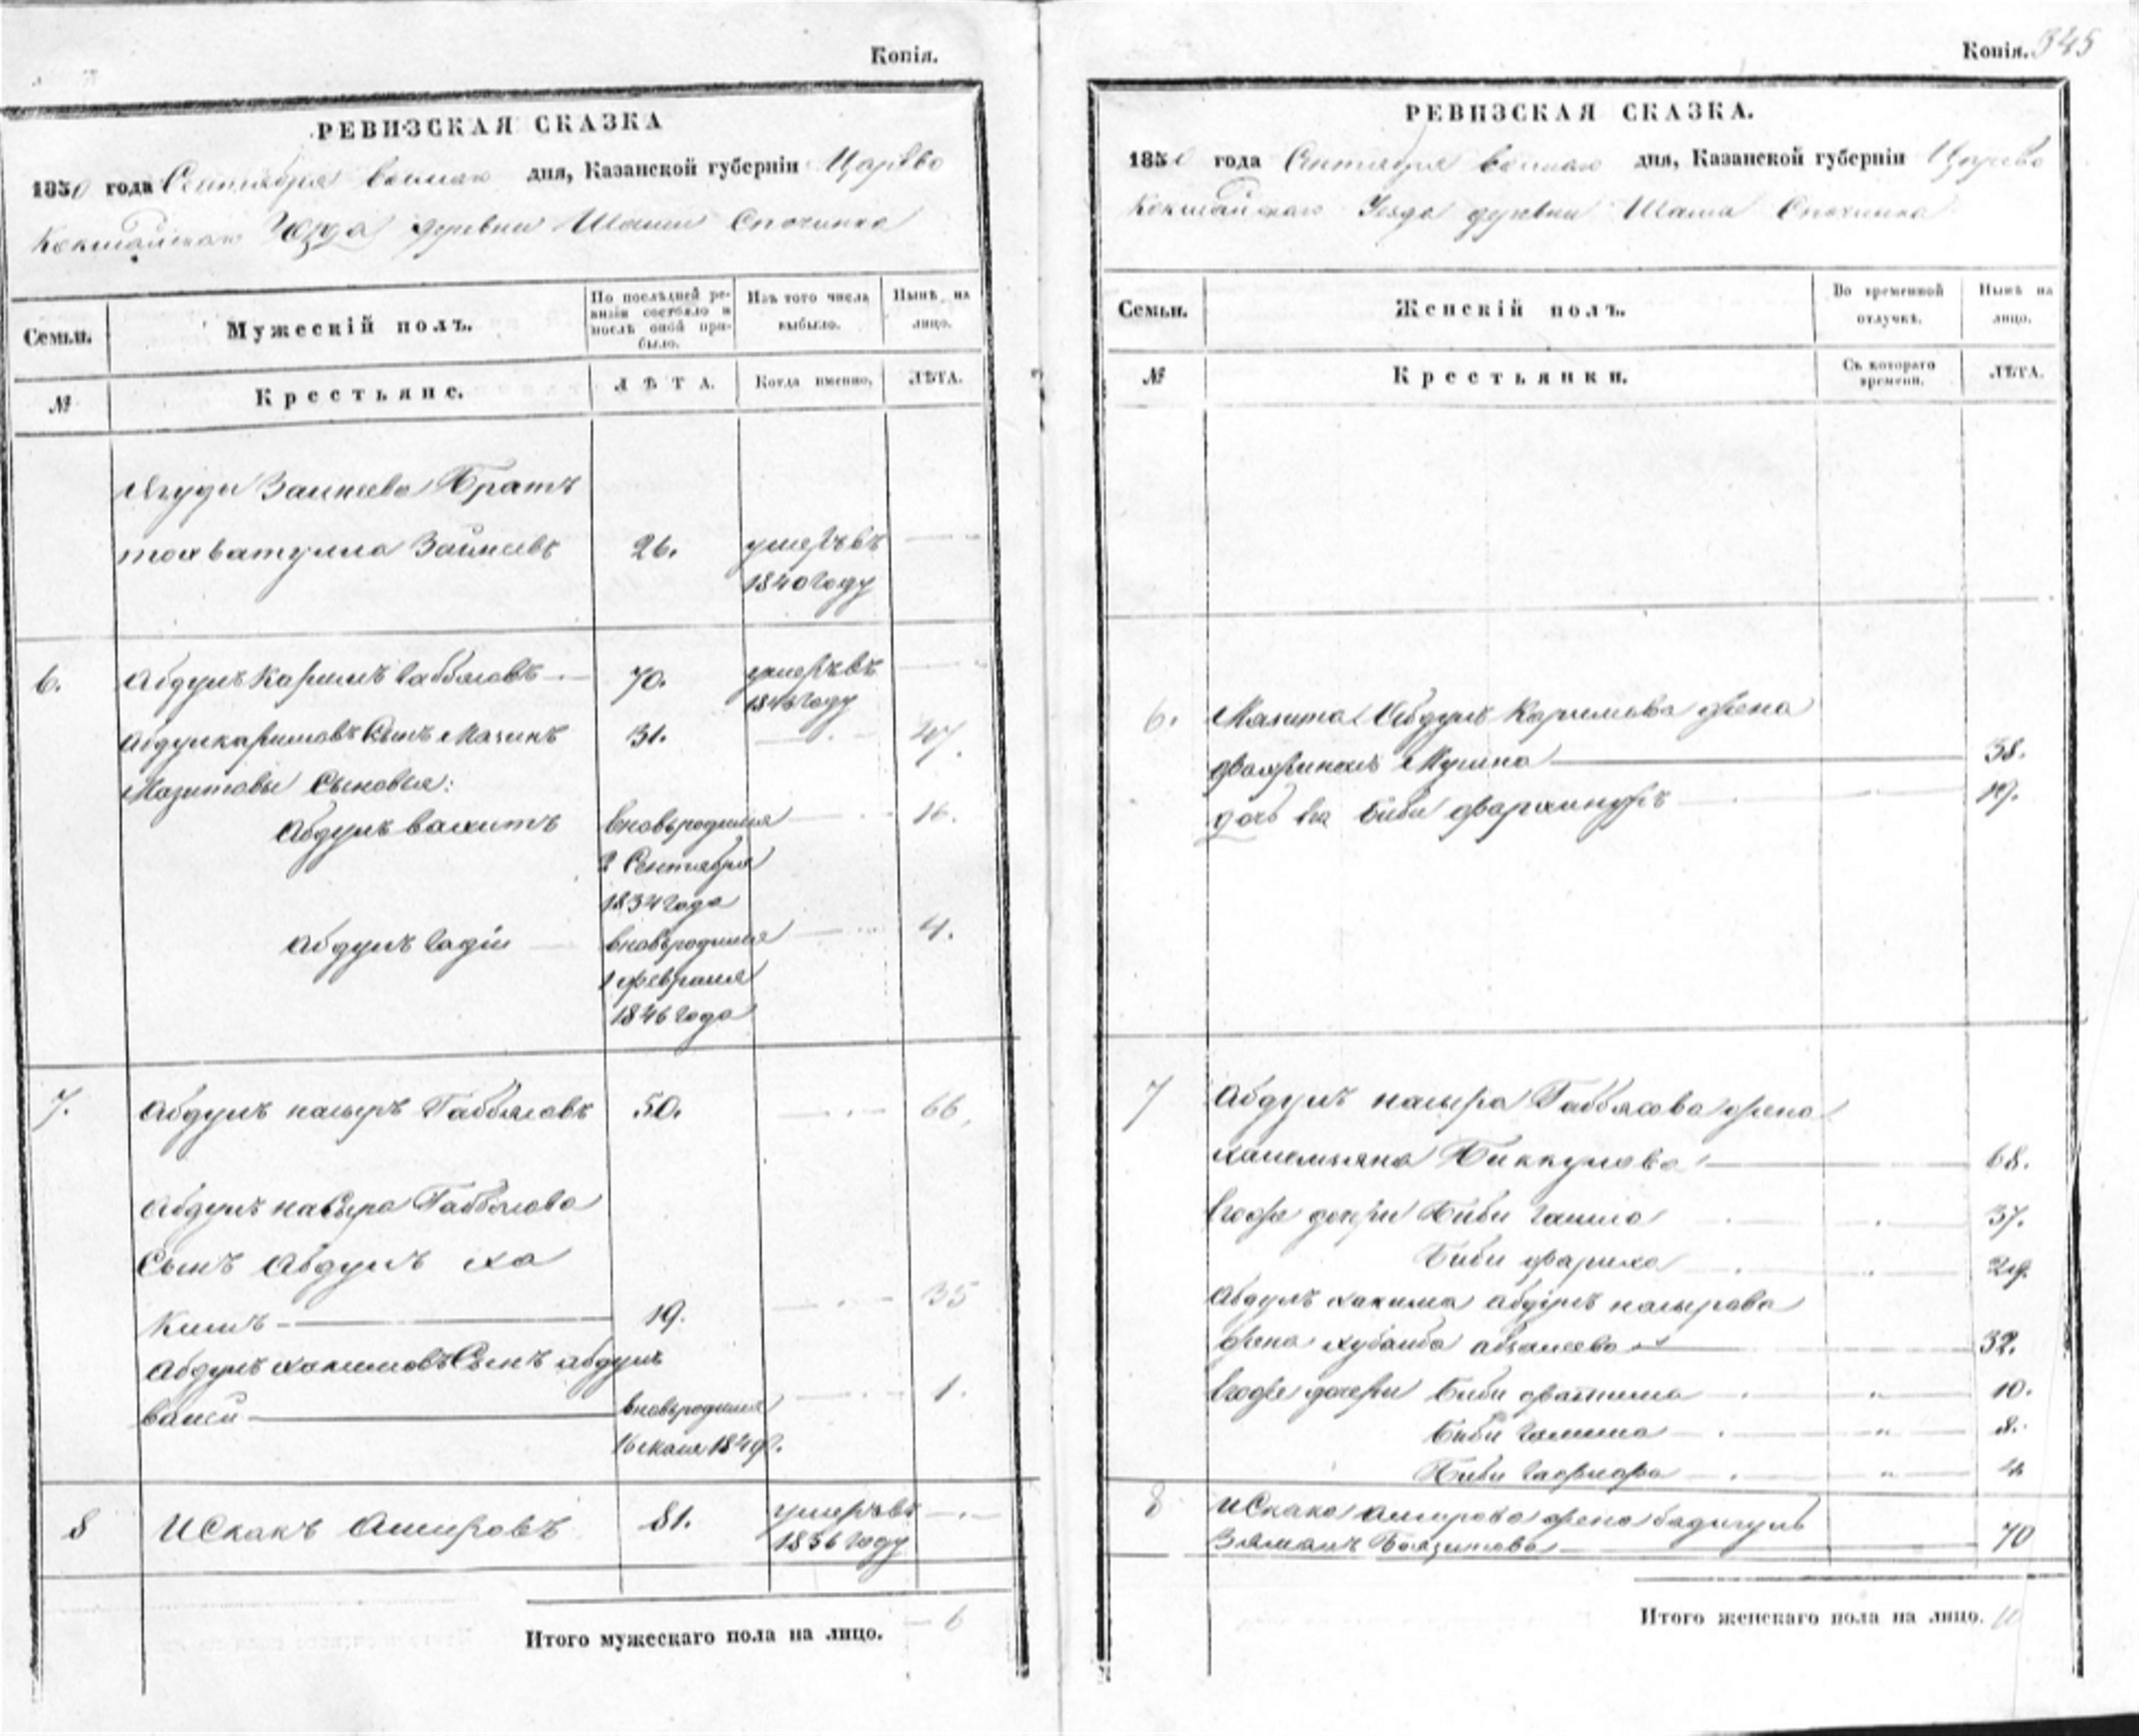 Копія.
РЕВИЗСКАЯ СКАЗКА
1850 года Сентября дня, Казанской губерніи Царево
Кокшайскаго Уѣзда деревни Шаши Спочинка
Семьи.
Мужескій полъ.
По послѣдней ре-
визіи состояло и
послѣ оной при-
было.
Изъ того числа
выбыло.
Нынѣ на
лицо.
№
Крестьяне.
ЛѢТА.
Когда именно.
ЛѢТА.
Ягуды Заинеева Братъ
Зайнеевъ 26. умеръ въ
1840 году
6. Абдулъ Каримъ Габбасовъ 70. умеръ въ
1846 году
Абдулкаримовъ Сынъ 31. 47.
Мазитовы Сыновья:
Абдулъ вахитъ вновьродился 16.
2 Сентября
1834 года
Абдулъ Гадіи вновьродился 4.
1 февраля
1846 года
7. Абдулъ насыръ Габбасовъ 50. 66.
Абдулъ насыра Габбасова
Сынъ Абдулъ ха
кимъ 19. 35
Абдулъ хакимовъ Сынъ абдулъ
валей вновьродился 1.
1849.
8 Искакъ Амировъ 81. умеръ въ
1836 году
Итого мужескаго пола на лицо. 6
Копія. 345
РЕВИЗСКАЯ СКАЗКА.
1850 года Сентября дня, Казанской губерніи Царево
Кокшайскаго Уезда деревни Шаша Спочинка
Семьи.
Женскій полъ.
Во временной
отлучкѣ.
Нынѣ на
лицо.
№
Крестьянки.
Съ котораго
времени.
ЛѢТА.
6. Мазита Абдулъ Каримова жена
Мусина 38.
дочь Ева Биби 19.
7 Абдулъ насыра Габбасова жена
Биккулова 68.
Егоже дочери Биби 37.
Биби фариха 29.
Абдулъ хакима абдулъ насырова
жена хубайба 32.
Егоже дочери Биби фатима 10.
Биби 8.
Биби 4
8 Искака Амирова жена бадигулъ
Заманъ Баязитова 70
Итого женскаго пола на лицо. 10